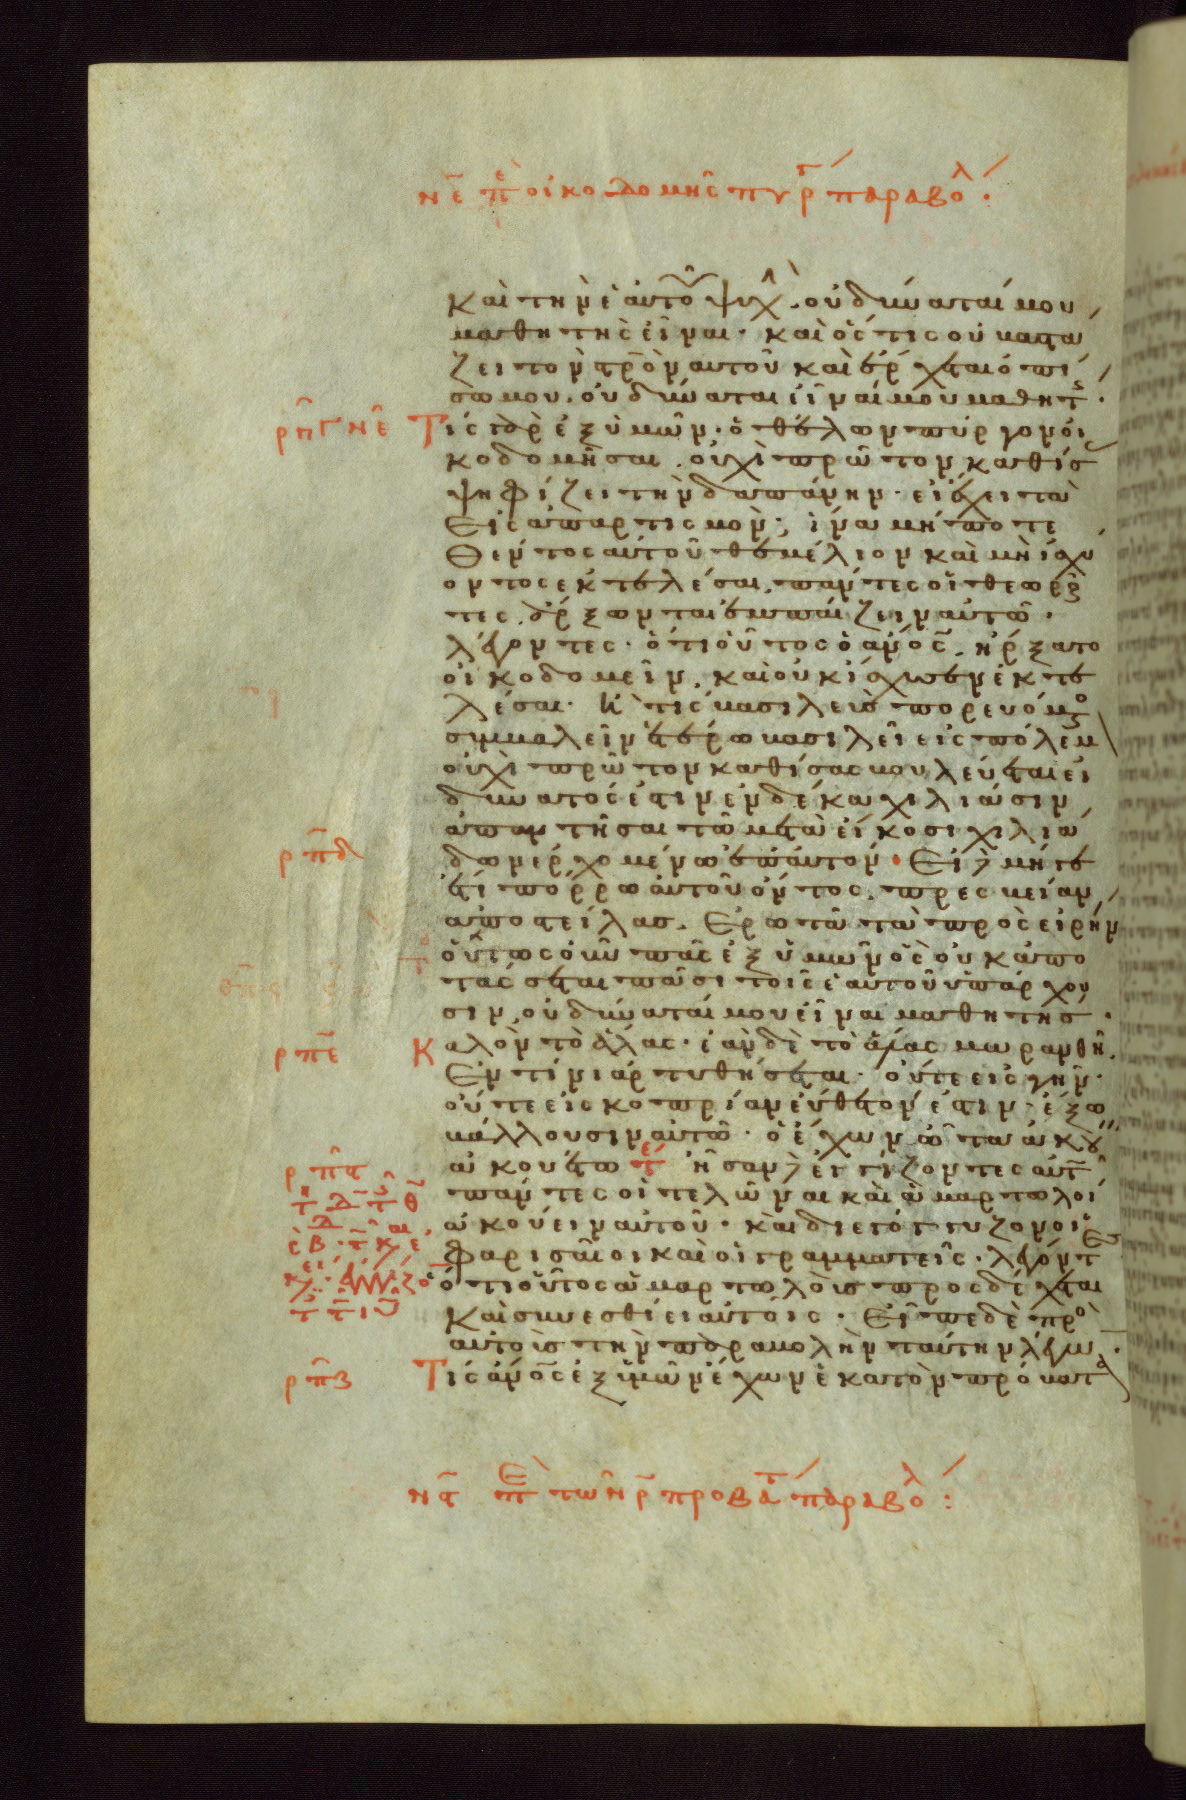 νε π οἰκοδομῆς πύργ παραβολ
καὶ τὴν ἑαυτοῦ ψυχ, οὐ δύναταί μου
μαθητὴς εἶναι· καὶ ὅστις οὐ βαστά
ζει τὸν στρον αὐτοῦ καὶ ἔρχεται ὀπί
σω μου, οὐ δύναται εἶναί μου μαθητ·
ρπγ νε Τίς γὰρ ἐξ ὑμῶν· ὁ θέλων πύργον οἰ
κοδομῆσαι, οὐχὶ πρῶτον καθίσ
ψηφίζει τὴν δαπάνην· εἰ ἔχει τὰ
εἰς ἀπαρτισμόν; ἵνα μήποτε
θέντος αὐτοῦ θεμέλιον καὶ μὴ ἰσχύ
οντος ἐκτελέσαι, πάντες οἱ θεωροῦ
τες, ἄρξωνται ἐμπαίζειν αὐτῶ·
λέγοντες· ὅτι οὗτος ὁ ανος, ἤρξατο
οἰκοδομεῖν, καὶ οὐκ ἴσχυσεν ἐκτε
λέσαι· Ἢ τίς βασιλεὺς πορευόμενο
συμβαλεῖν ἑτέρω βασιλεῖ εἰς πόλεμ
οὐχὶ πρῶτον καθίσας βουλεύεται εἰ
δυνατός ἐστιν ἐν δέκα χιλιάσιν
ἀπαντῆσαι τῶ μετὰ εἴκοσι χιλιά
ρπδ δων ἐρχομένω ἐπ αὐτόν· Εἰ δὲ μήγε
ἔτι πόρρω αὐτοῦ ὄντος, πρεσβείαν
ἀποστείλας, Ἐρωτᾶ τὰ πρὸς εἰρήν
οὕτως οὖν πᾶς ἐξ ὑμῶν ὃς οὐκ ἀπο
τάσσεται πᾶσι τοῖς ἑαυτοῦ ὑπάρχου
σιν, οὐ δύναταί μου εἶναι μαθητής·
ρπε Καλὸν τὸ ἅλας· ἐὰν δὲ τὸ ἅλας μωρανθῆ,
Ἐν τίνι ἀρτυθήσεται· οὔτε εἰς γῆν·
οὔτε εἰς κοπρίαν εὔθετόν ἐστιν· ἔξω
βάλλουσιν αὐτῶ· ὁ ἔχων ὦτα ἀκού
ρπς ἀκουέτω τε Ἦσαν δὲ ἐγγίζοντες αὐτ
πάντες οἱ τελῶναι καὶ ἁμαρτωλοί
ἀκούειν αὐτοῦ· καὶ διεγόγγυζον οἱ
Φαρισαῖοι καὶ οἱ γραμματεῖς· λέγοντ
ὅτι οὗτος ἁμαρτωλοὺς προσδέχεται
καὶ συνεσθίει αὐτοῖς· Εἶπε δὲ πρὸ
αὐτοὺς τὴν παραβολὴν ταύτην λέγω·
ρπζ Τίς ανος ἐξ ὑμῶν ἔχων ἑκατὸν πρόβατα
νς Επ τῶν ρ προβατ παραβολ: